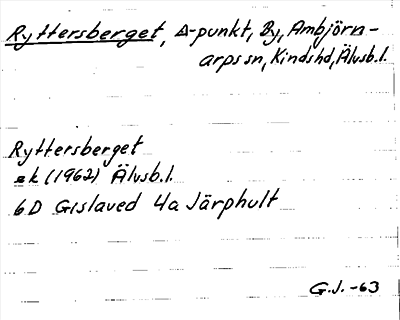 Ryttersberget, △-punkt, By, Ambjörn-
arps sn, Kindshd, Älvsb.l.
Ryttersberget
ek (1962) Älvsb.l.
6D Gislaved 4a Järphult
G.J. -63